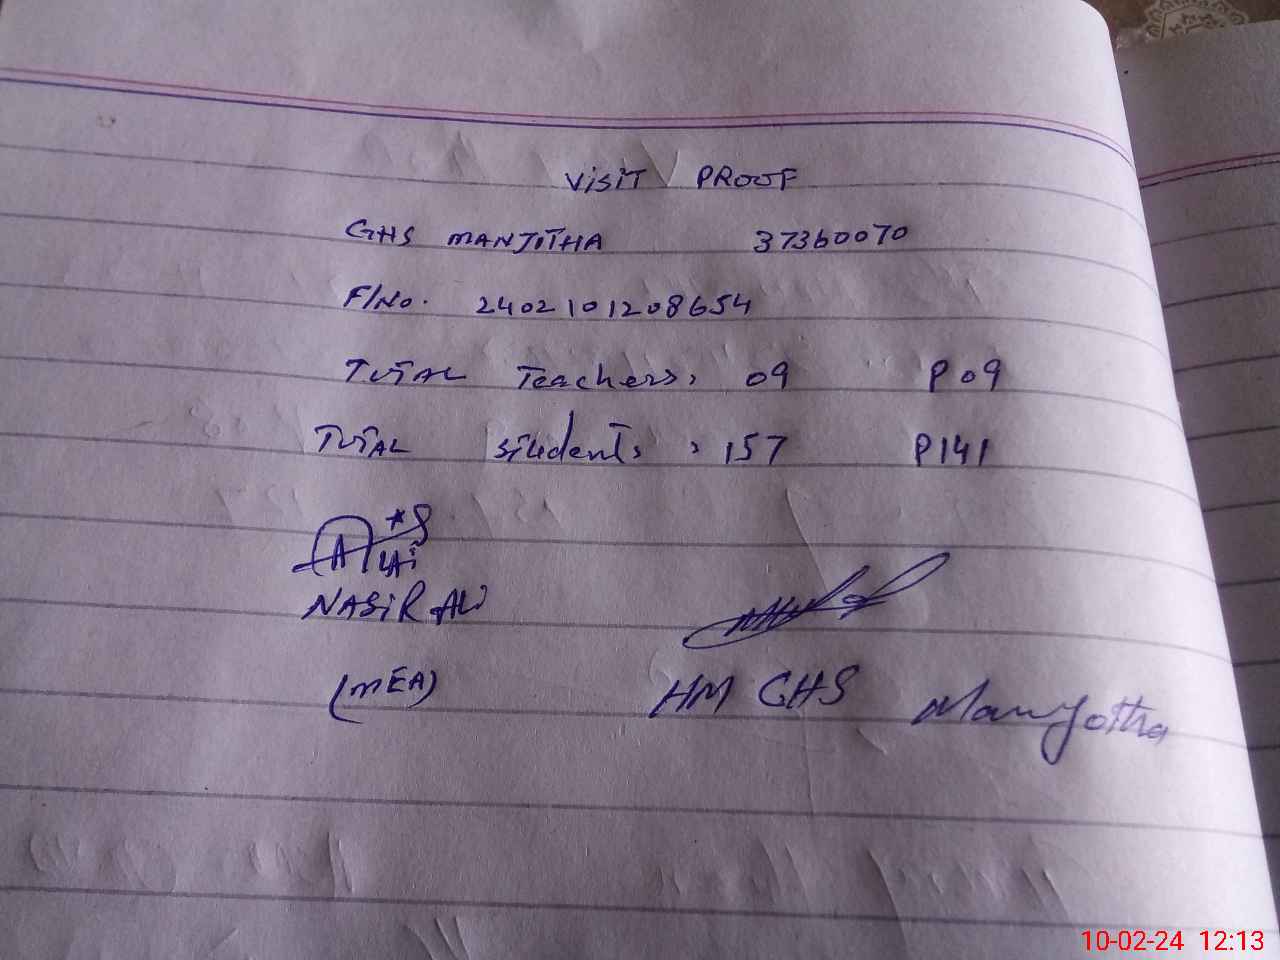 VISIT PROOF
GHS MANJOTHA 37360070
F/No. 2402101208654
TOTAL Teachers: 09 P 09
TOTAL Students: 157 P 141
NASIR ALI
(MEA)
HM GHS Manjotha
10-02-24 12:13